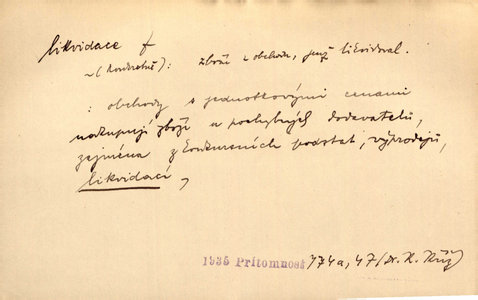 likvidace f
~ (konkretně): zboží z obchodu, jenž likvidoval.
: obchody s jednotkovými cenami
nakupují zboží u pochybných dodavatelů,
zejména z konkursních podstat, výprodejů,
likvidací,
1935 Přítomnost 774a, 47 (Dr. K. Kříž)